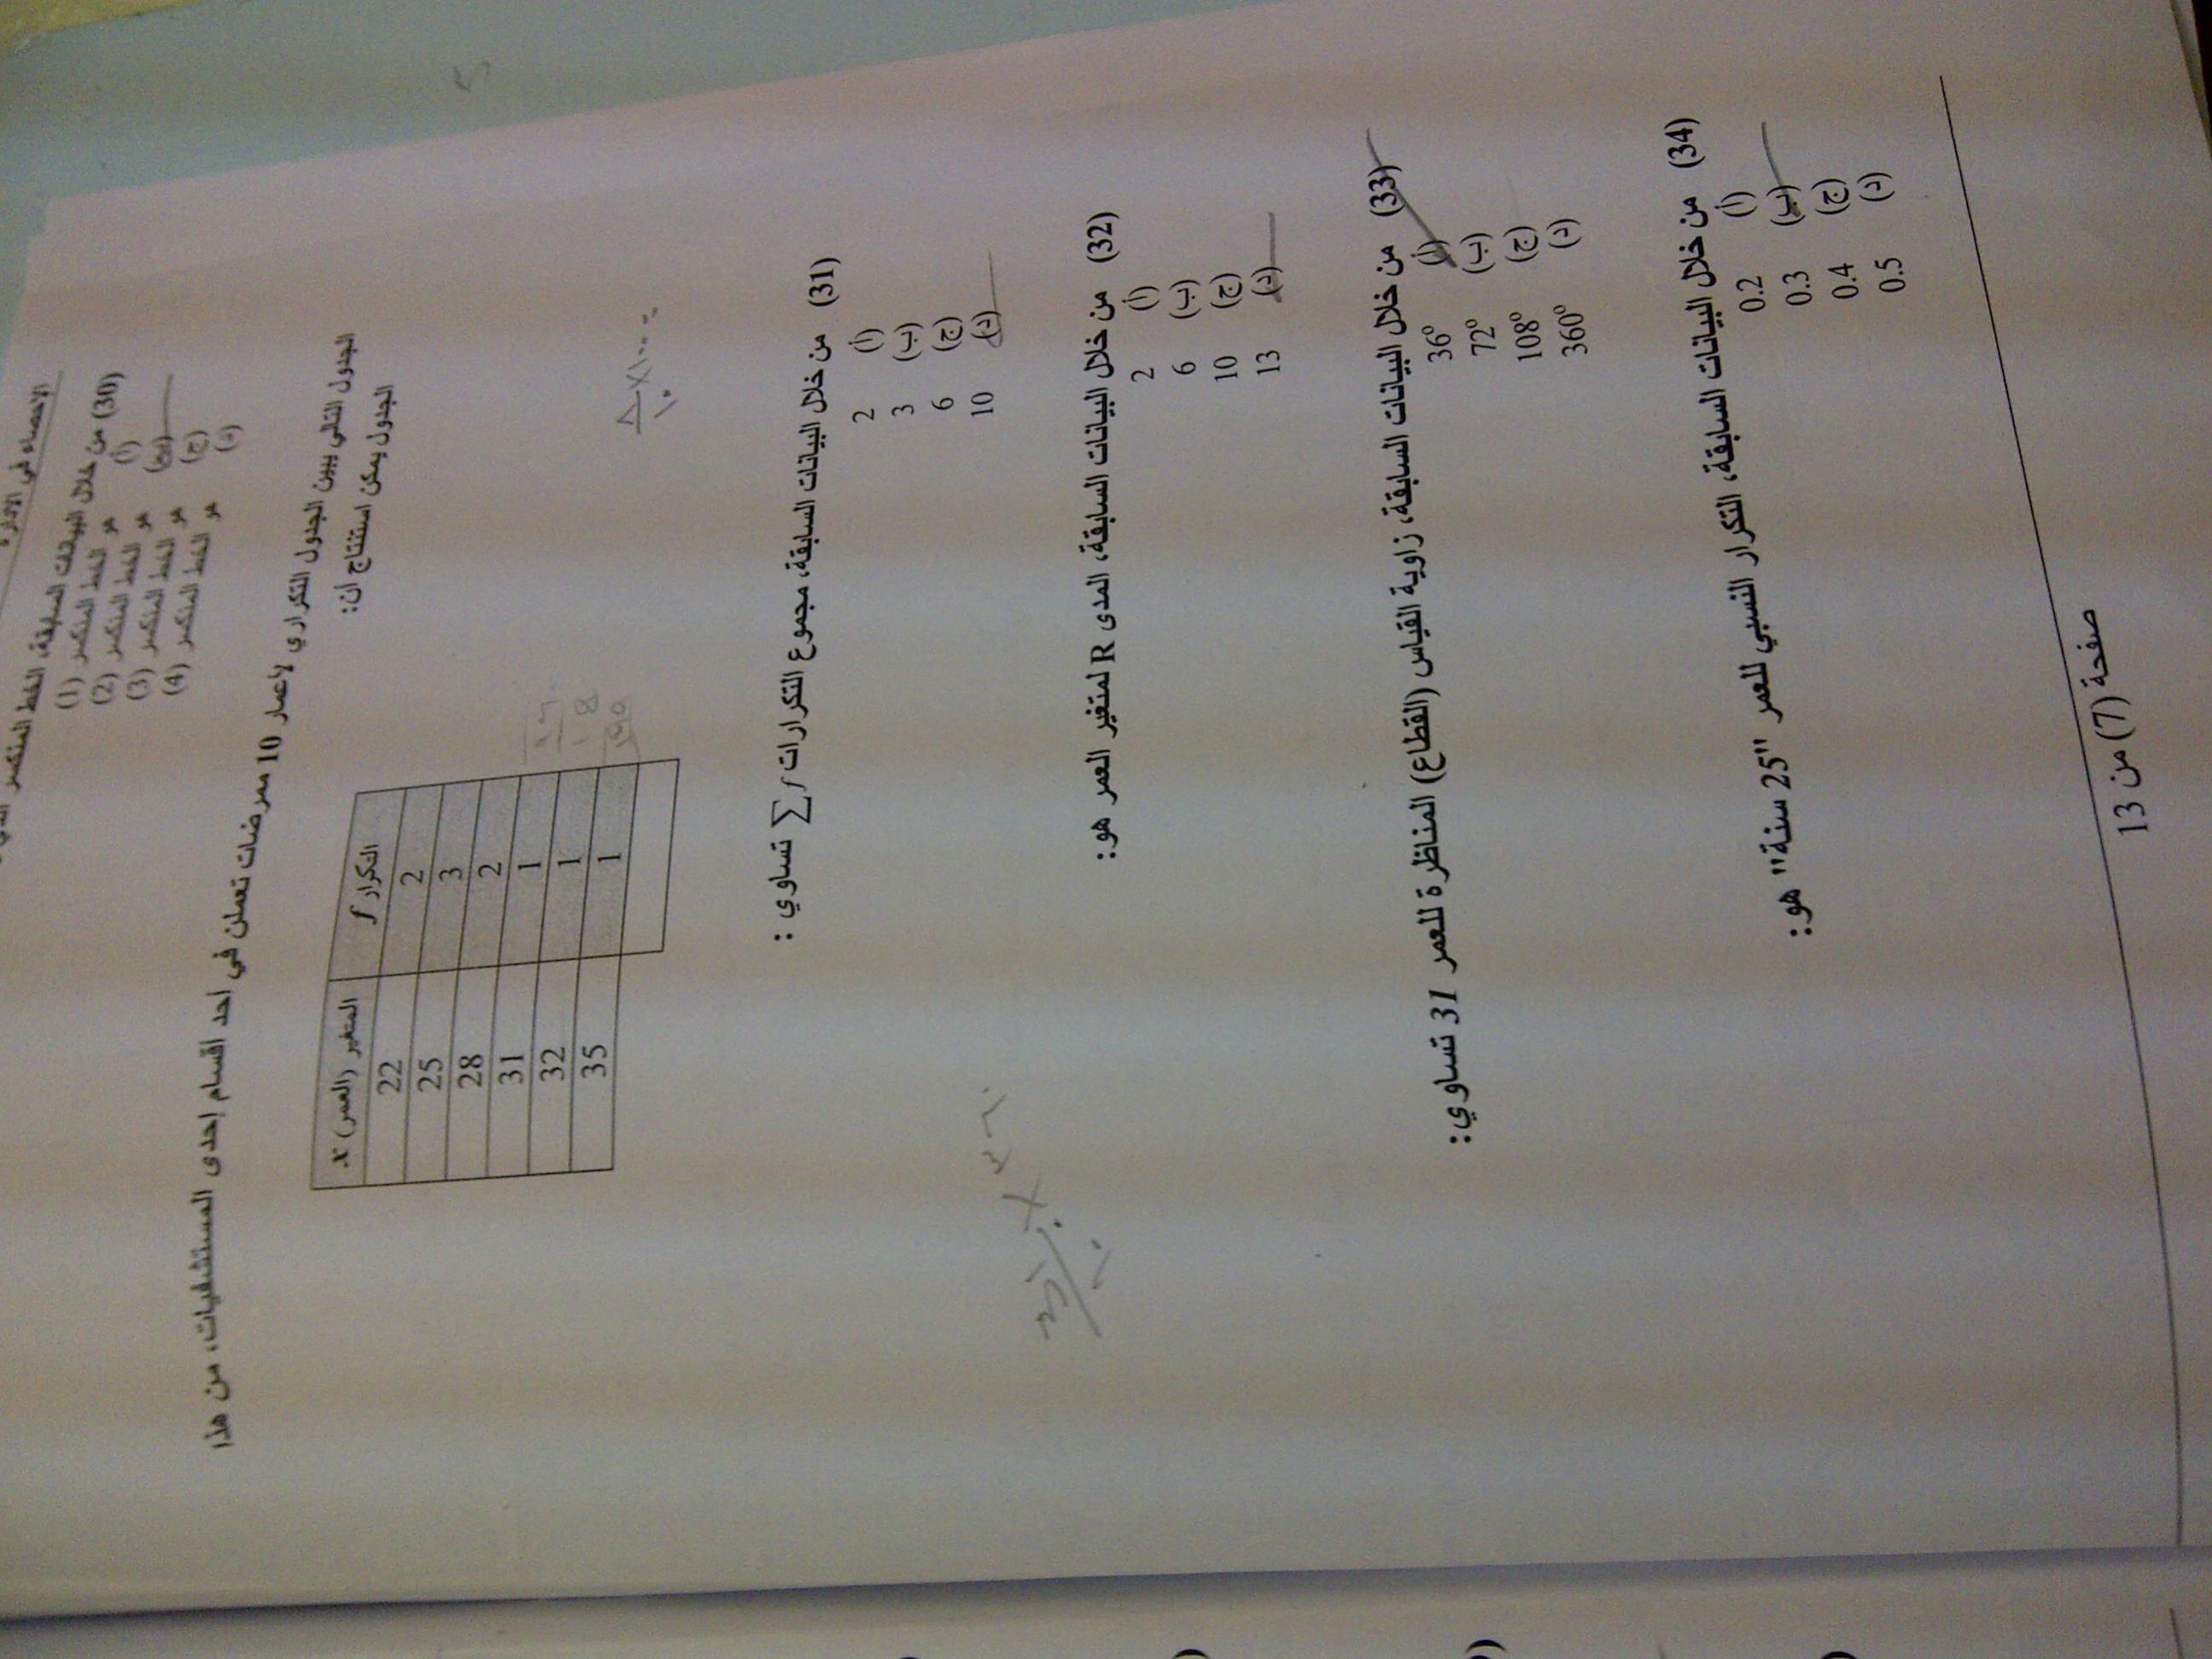 الإحصاء في الإدارة
(30) من خلال البيانات السابقة، الخط المنكسر
(أ) هو الخط المنكسر (1)
(ب) هو الخط المنكسر (2)
(ج) هو الخط المنكسر (3)
(د) هو الخط المنكسر (4)
الجدول التالي يبين الجدول التكراري لأعمار 10 ممرضات تعملن في احد اقسام إحدى المستشفيات، من هذا
الجدول يمكن استنتاج أن:
المتغير (العمر) x التكرار f
22 2
25 3
28 2
31 1
32 1
35 1
(31) من خلال البيانات السابقة، مجموع التكرارات ∑f تساوي :
(أ) 2
(ب) 3
(ج) 6
(د) 10
(32) من خلال البيانات السابقة، المدى R لمتغير العمر هو:
(أ) 2
(ب) 6
(ج) 10
(د) 13
(33) من خلال البيانات السابقة، زاوية القياس (القطاع) المناظرة للعمر 31 تساوي:
(أ) 36°
(ب) 72°
(ج) 108°
(د) 360°
(34) من خلال البيانات السابقة، التكرار النسبي للعمر "25 سنة" هو:
(أ) 0.2
(ب) 0.3
(ج) 0.4
(د) 0.5
صفحة (7) من 13